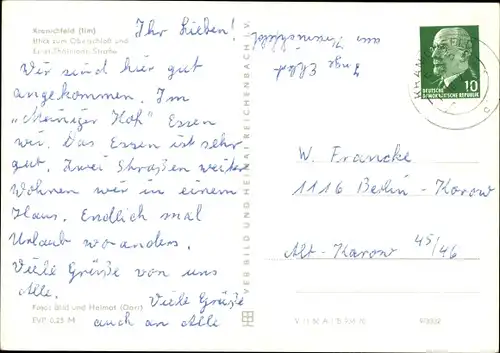 Kranichfeld (Ilm)
Blick zum Oberschloß und
Ernst-Thälmann-Straße
Ihr Lieben!
Wir sind hier gut
angekommen. Im
„Meininger Hof" Essen
wir. Das Essen ist sehr
gut. Zwei Straßen weiter
Wohnen wir in einem
Haus. Endlich mal
Urlaub wo anders.
Viele Grüße von uns
Alle.
Viele Grüße
auch an Alle
Fotos: Bild und Heimat (Darr)
EVP 0,25 M
VEB BILD UND HEIMAT REICHENBACH I. V.
aus
DEUTSCHE
DEMOKRATISCHE REPUBLIK
10
W. Francke
1116 Berlin-Karow
Alt-Karow 45/46